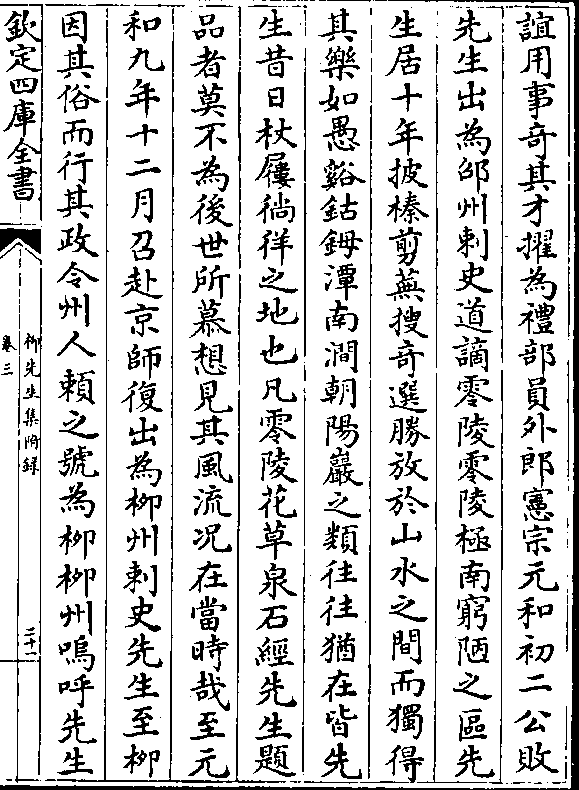 誼用事竒其才擢為禮部員外郎憲宗元和初二公敗
先生出為邵州刺史道謫零陵零陵極南窮陋之區先
生居十年披榛剪蕪搜竒選勝放於山水之間而獨得
其樂如愚谿鈷鉧潭南澗朝陽巖之類往往猶在皆先
生昔日杖屨徜徉之地也凡零陵花草泉石經先生題
品者莫不為後世所慕想見其風流况在當時哉至元
和九年十二月召赴京師復出為柳州刺史先生至柳
因其俗而行其政令州人頼之號為柳柳州嗚呼先生
欽定四庫全書
柳先生集附録
卷三
三十一